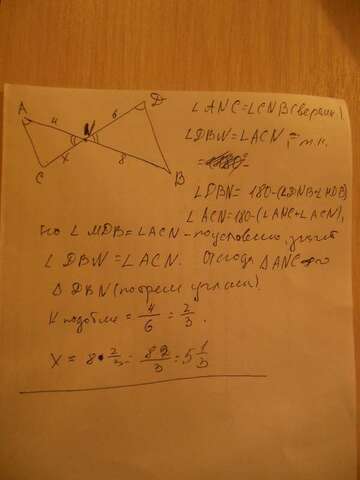 A
4
N
6
D
C
x
8
B
∠ANC=∠CNB(вертик)
∠DBN=∠ACN, т.к.
=
∠DBN= 180-(∠DNB+∠NDB)
∠ACN=180-(∠ANC+∠ACN),
но ∠MDB=∠ACN-по условию, значит
∠DBN=∠ACN. Отсюда ΔANC
Δ DBN(по трем углам).
К подобия = 4/6 = 2/3.
X = 8·2/3 = 82/3 = 5 1/3